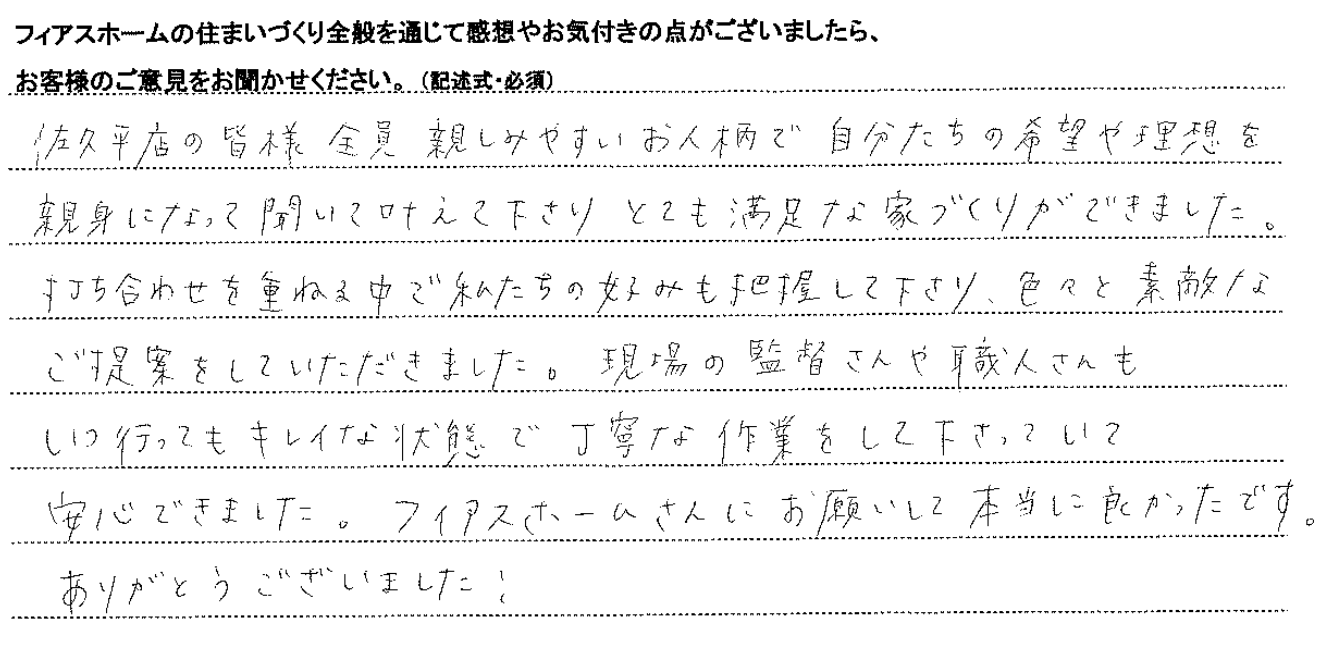 フィアスホームの住まいづくり全般を通じて感想やお気付きの点がございましたら、
お客様のご意見をお聞かせください。（記述式・必須）
佐久平店の皆様 全員 親しみやすいお人柄で 自分たちの希望や理想を
親身になって聞いて叶えて下さり とても満足な家づくりができました。
打ち合わせを重ねる中で私たちの好みも把握して下さり、色々と素敵な
ご提案をしていただきました。現場の監督さんや職人さんも
いつ行ってもキレイな状態で丁寧な作業をして下さっていて
安心できました。フィアスホームさんにお願いして本当に良かったです。
ありがとうございました！